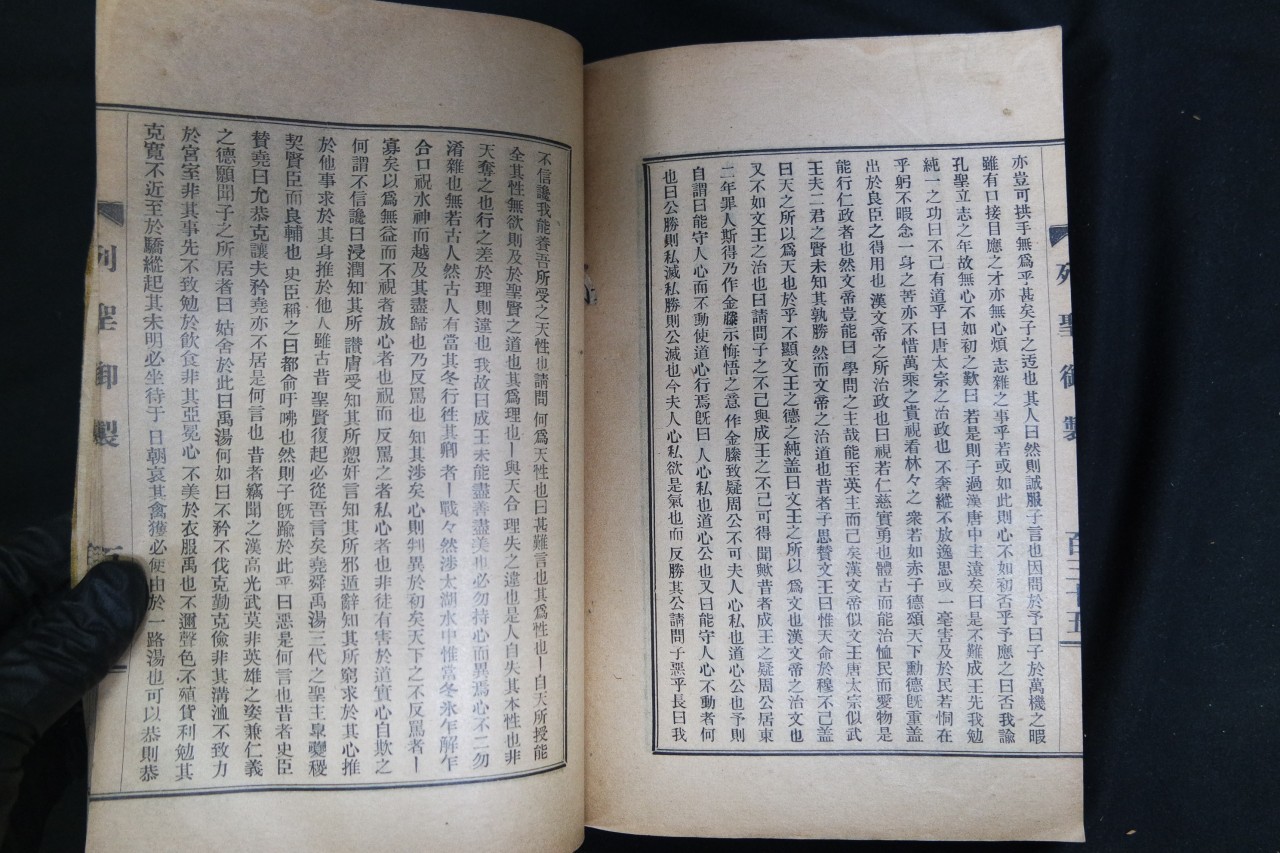 列聖御製
百三十五
亦豈可拱手無爲乎甚矣子之迃也其人曰然則誠服子言也因問於予曰子於萬機之暇
雖有口接目應之才亦無心煩志雜之事乎若或如此則心不如初否乎予應之曰否我論
孔聖立志之年故無心不如初之歎曰若是則子過漢唐中主遠矣曰是不難成王先我勉
純一之功曰不已有道乎曰唐太宗之治政也不奢縱不放逸思或一毫害及於民若恫在
乎躬不暇念一身之苦亦不惜萬乘之貴視看林々之衆若如赤子德頌天下勳德旣重盖
出於良臣之得用也漢文帝之所治政也曰視若仁慈實勇也體古而能治恤民而愛物是
能行仁政者也然文帝豈能曰學問之主哉能至英主而已矣漢文帝似文王唐太宗似武
王夫二君之賢未知其孰勝然而文帝之治道也昔者子思賛文王曰惟天命於穆不已盖
曰天之所以爲天也於乎不顯文王之德之純盖曰文王之所以爲文也漢文帝之治文也
又不如文王之治也曰請問子之不已與成王之不已可得聞歟昔者成王之疑周公居東
二年罪人斯得乃作金縢示悔悟之意作金縢致疑周公不可夫人心私也道心公也予則
自謂曰能守人心而不動使道心行焉旣曰人心私也道心公也又曰能守人心不動者何
也曰公勝則私滅私勝則公滅也今夫人心私欲是氣也而反勝其公請問子惡乎長曰我
不信讒我能養吾所受之天性也請問何爲天性也曰甚難言也其爲性也一自天所授能
全其性無欲則及於聖賢之道也其爲理也一與天合理失之違也是人自失其本性也非
天奪之也行之差於理則違也我故曰成王未能盡善盡美也必勿持心而異焉心不二勿
淆雜也無若古人然古人有當其冬行徃其鄕者一戰々然渉太湖水中惟當冬氷乍解乍
合口祝水神而越及其盡歸也乃反罵也知其渉矣心則判異於初矣天下之不反罵者一
寡矣以爲無益而不祝者放心者也祝而反罵之者私心者也非徒有害於道實心自欺之
何謂不信讒曰浸潤知其所讃膚受知其所愬奸言知其所邪遁辭知其所窮求於其心推
於他事求於其身推於他人雖古昔聖賢復起必從吾言矣堯舜禹湯三代之聖主臯夔稷
契賢臣而良輔也史臣稱之曰都俞吁咈也然則子旣踰於此乎曰惡是何言也昔者史臣
賛堯曰允恭克讓夫矜堯亦不居是何言也昔者竊聞之漢高光武莫非英雄之姿兼仁義
之德願聞子之所居者曰姑舍於此曰禹湯何如曰不矜不伐克勤克儉非其溝洫不致力
於宮室非其事先不致勉於飲食非其亞冕心不美於衣服禹也不邇聲色不殖貨利勉其
克寬不近至於驕縱起其未明必坐待于日朝哀其禽獲必使由於一路湯也可以恭則恭
列聖御製